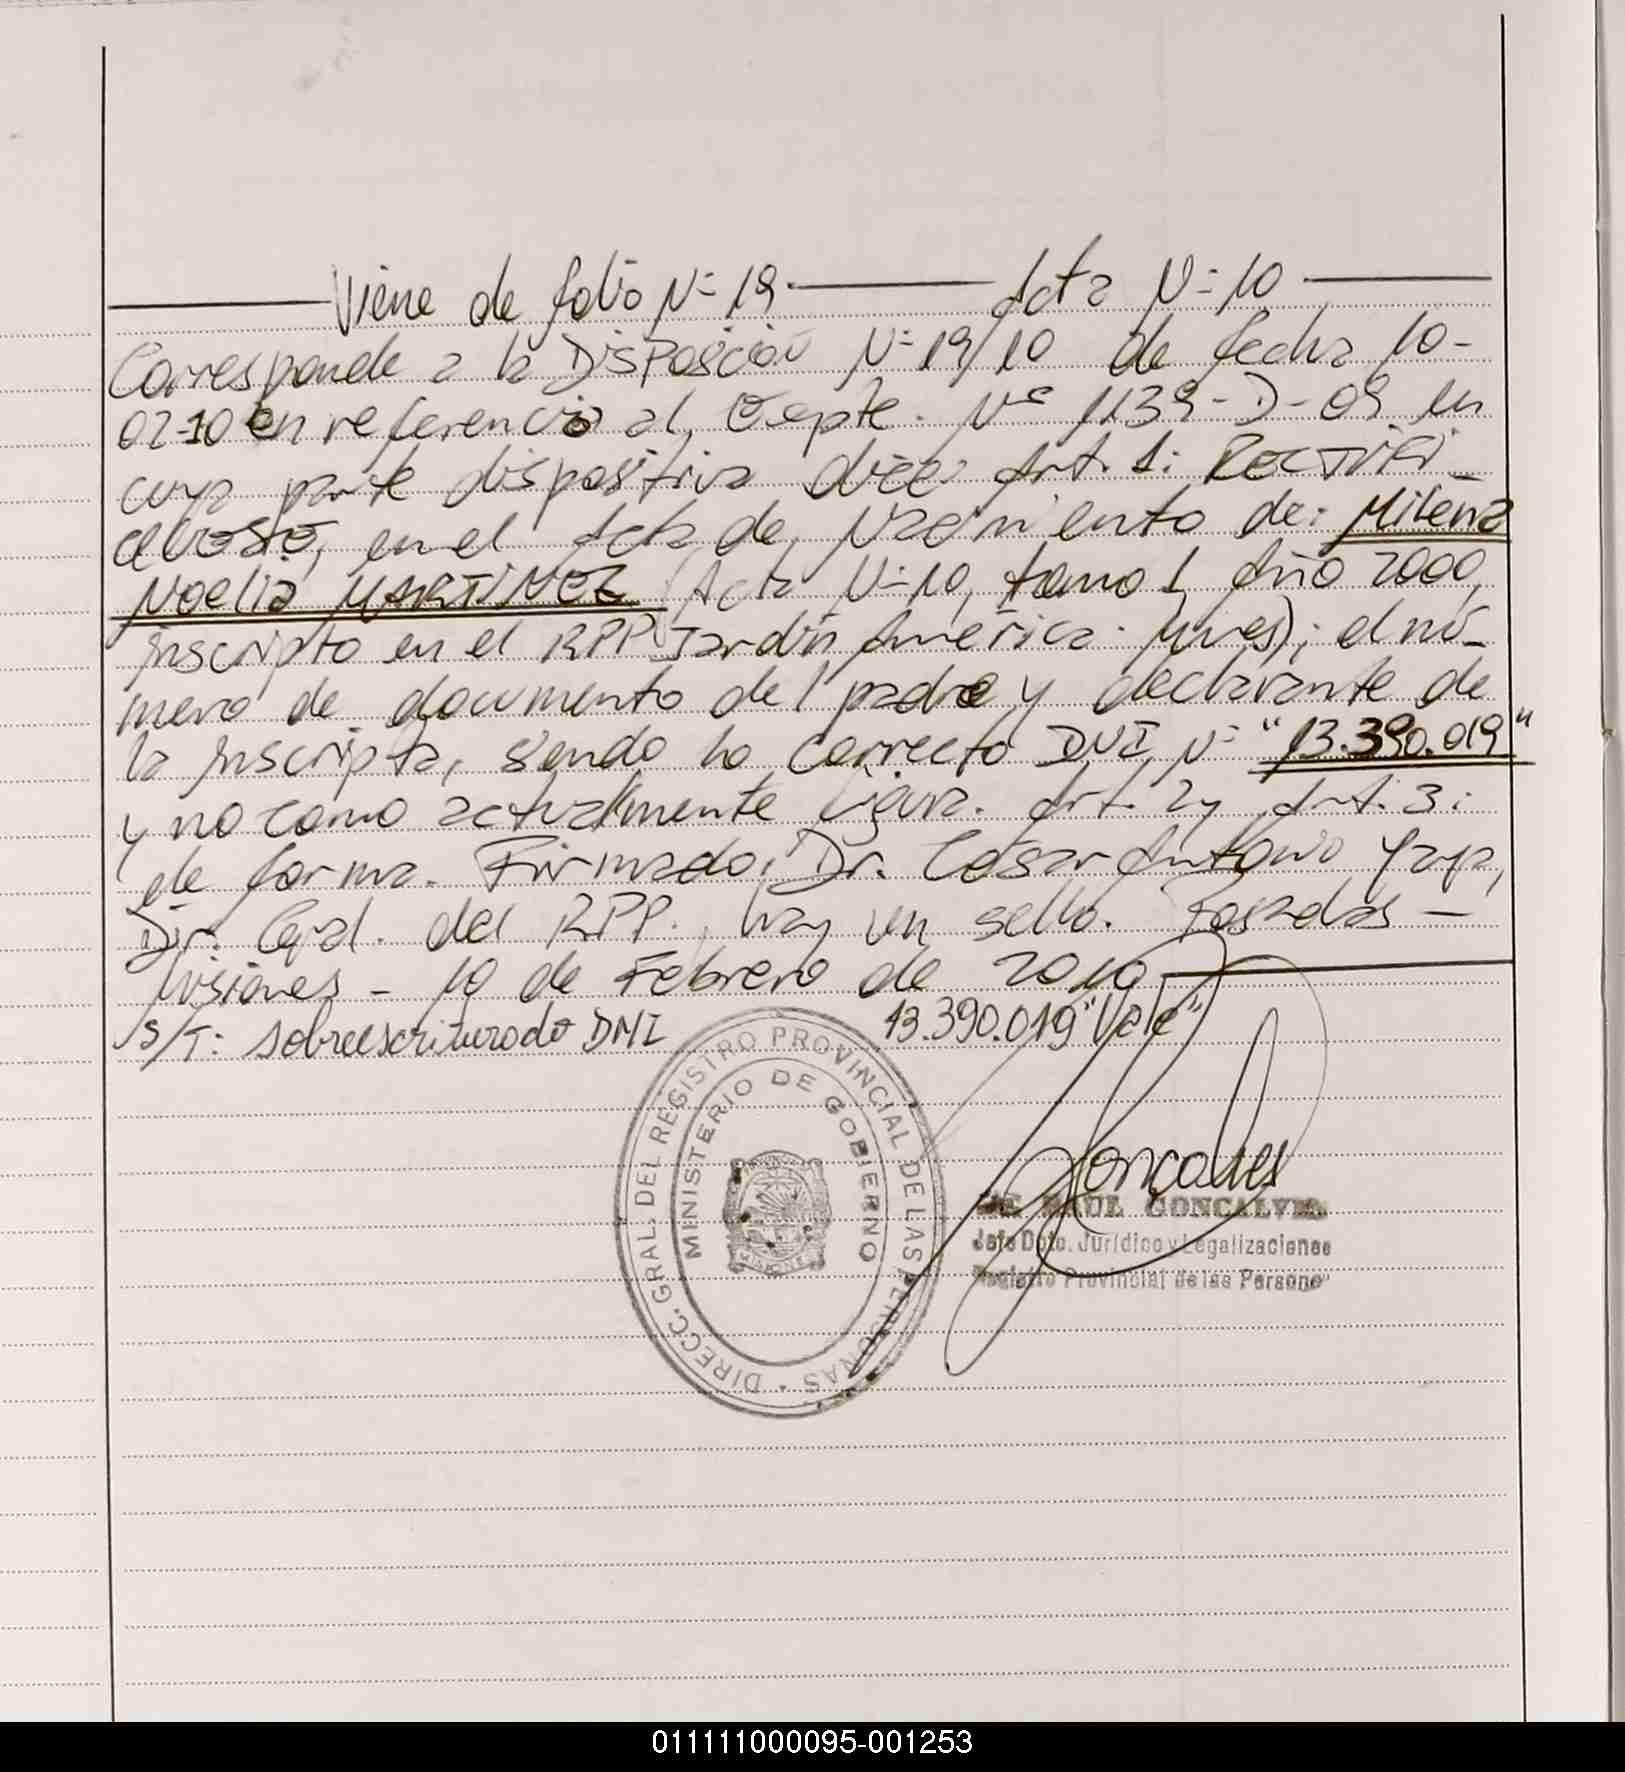 Viene de folio N= 19.  Acta N= 10
Corresponde a la Disposición N= 19/10 de fecha 10-
02-10 en referencia al Expte. Nº 1139-D-09 en
cuya parte dispositiva dice: Art. 1: RECTIFI-
en el Acta de Nacimiento de: Milena
Noelia MARTINEZ (Acta N=10, tomo 1, Año 2000,
inscripto en el RPP Jardín América. Mnes); el nú-
mero de documento del padre y declarante de
la inscripta, siendo lo correcto DNI N= "13.390.019"
y no como actualmente figura. Art. 2 y Art. 3:
de forma. Firmado: Dr. César Antonio
Dir. Gral. del RPP., hay un sello. Posadas -
Misiones - 10 de Febrero de 2010
S/T: sobreescriturado DNI 13.390.019 "Vale"
DIRECC. GRAL. DEL REGISTRO PROVINCIAL DE LAS PERSONAS
MINISTERIO DE GOBIERNO
MISIONES
Goncalves
RAUL GONCALVES
Jefe Dpto. Jurídico y Legalizaciones
Registro Provincial de las Persona
011111000095-001253